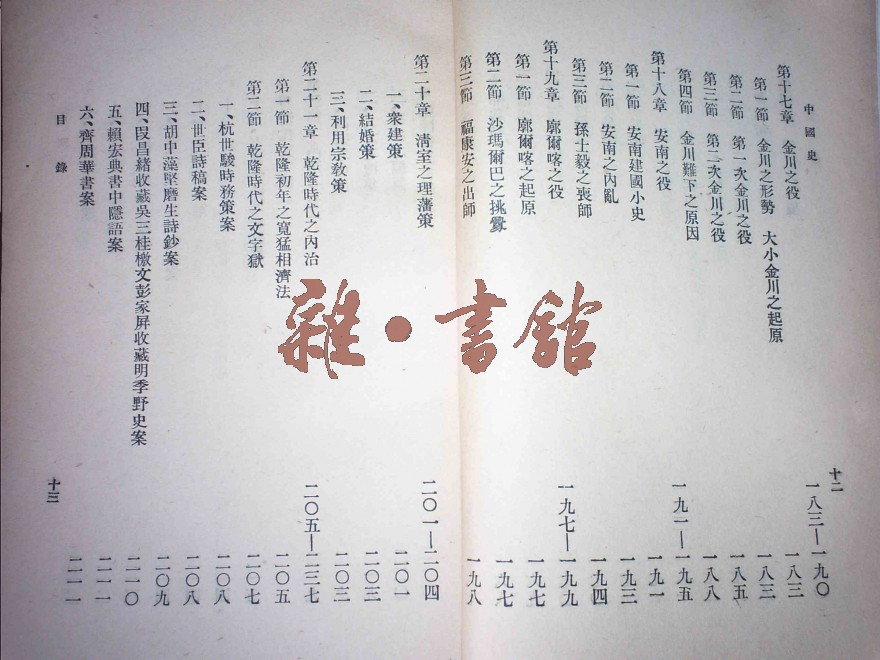 中國史
十二
第十七章 金川之役 一八三—一九〇
第一節 金川之形勢 大小金川之起原 一八三
第二節 第一次金川之役 一八五
第三節 第二次金川之役 一八八
第四節 金川難下之原因 一九一
第十八章 安南之役 一九一—一九五
第一節 安南建國小史 一九一
第二節 安南之內亂 一九三
第三節 孫士毅之喪師 一九四
第十九章 廓爾喀之役 一九七—一九九
第一節 廓爾喀之起原 一九七
第二節 沙瑪爾巴之挑釁 一九七
第三節 福康安之出師 一九八
第二十章 淸室之理藩策 二〇一—二〇四
一、衆建策 二〇一
二、結婚策 二〇三
三、利用宗敎策 二〇三
第二十一章 乾隆時代之內治 二〇五—二三七
第一節 乾隆初年之寬猛相濟法 二〇五
第二節 乾隆時代之文字獄 二〇七
一、杭世駿時務策案 二〇八
二、世臣詩稿案 二〇八
三、胡中藻堅磨生詩鈔案 二〇九
四、段昌緖收藏吳三桂檄文彭家屏收藏明季野史案 二一〇
五、賴宏典書中隱語案 二一一
六、齊周華書案 二一一
目錄
十三
雜·書館